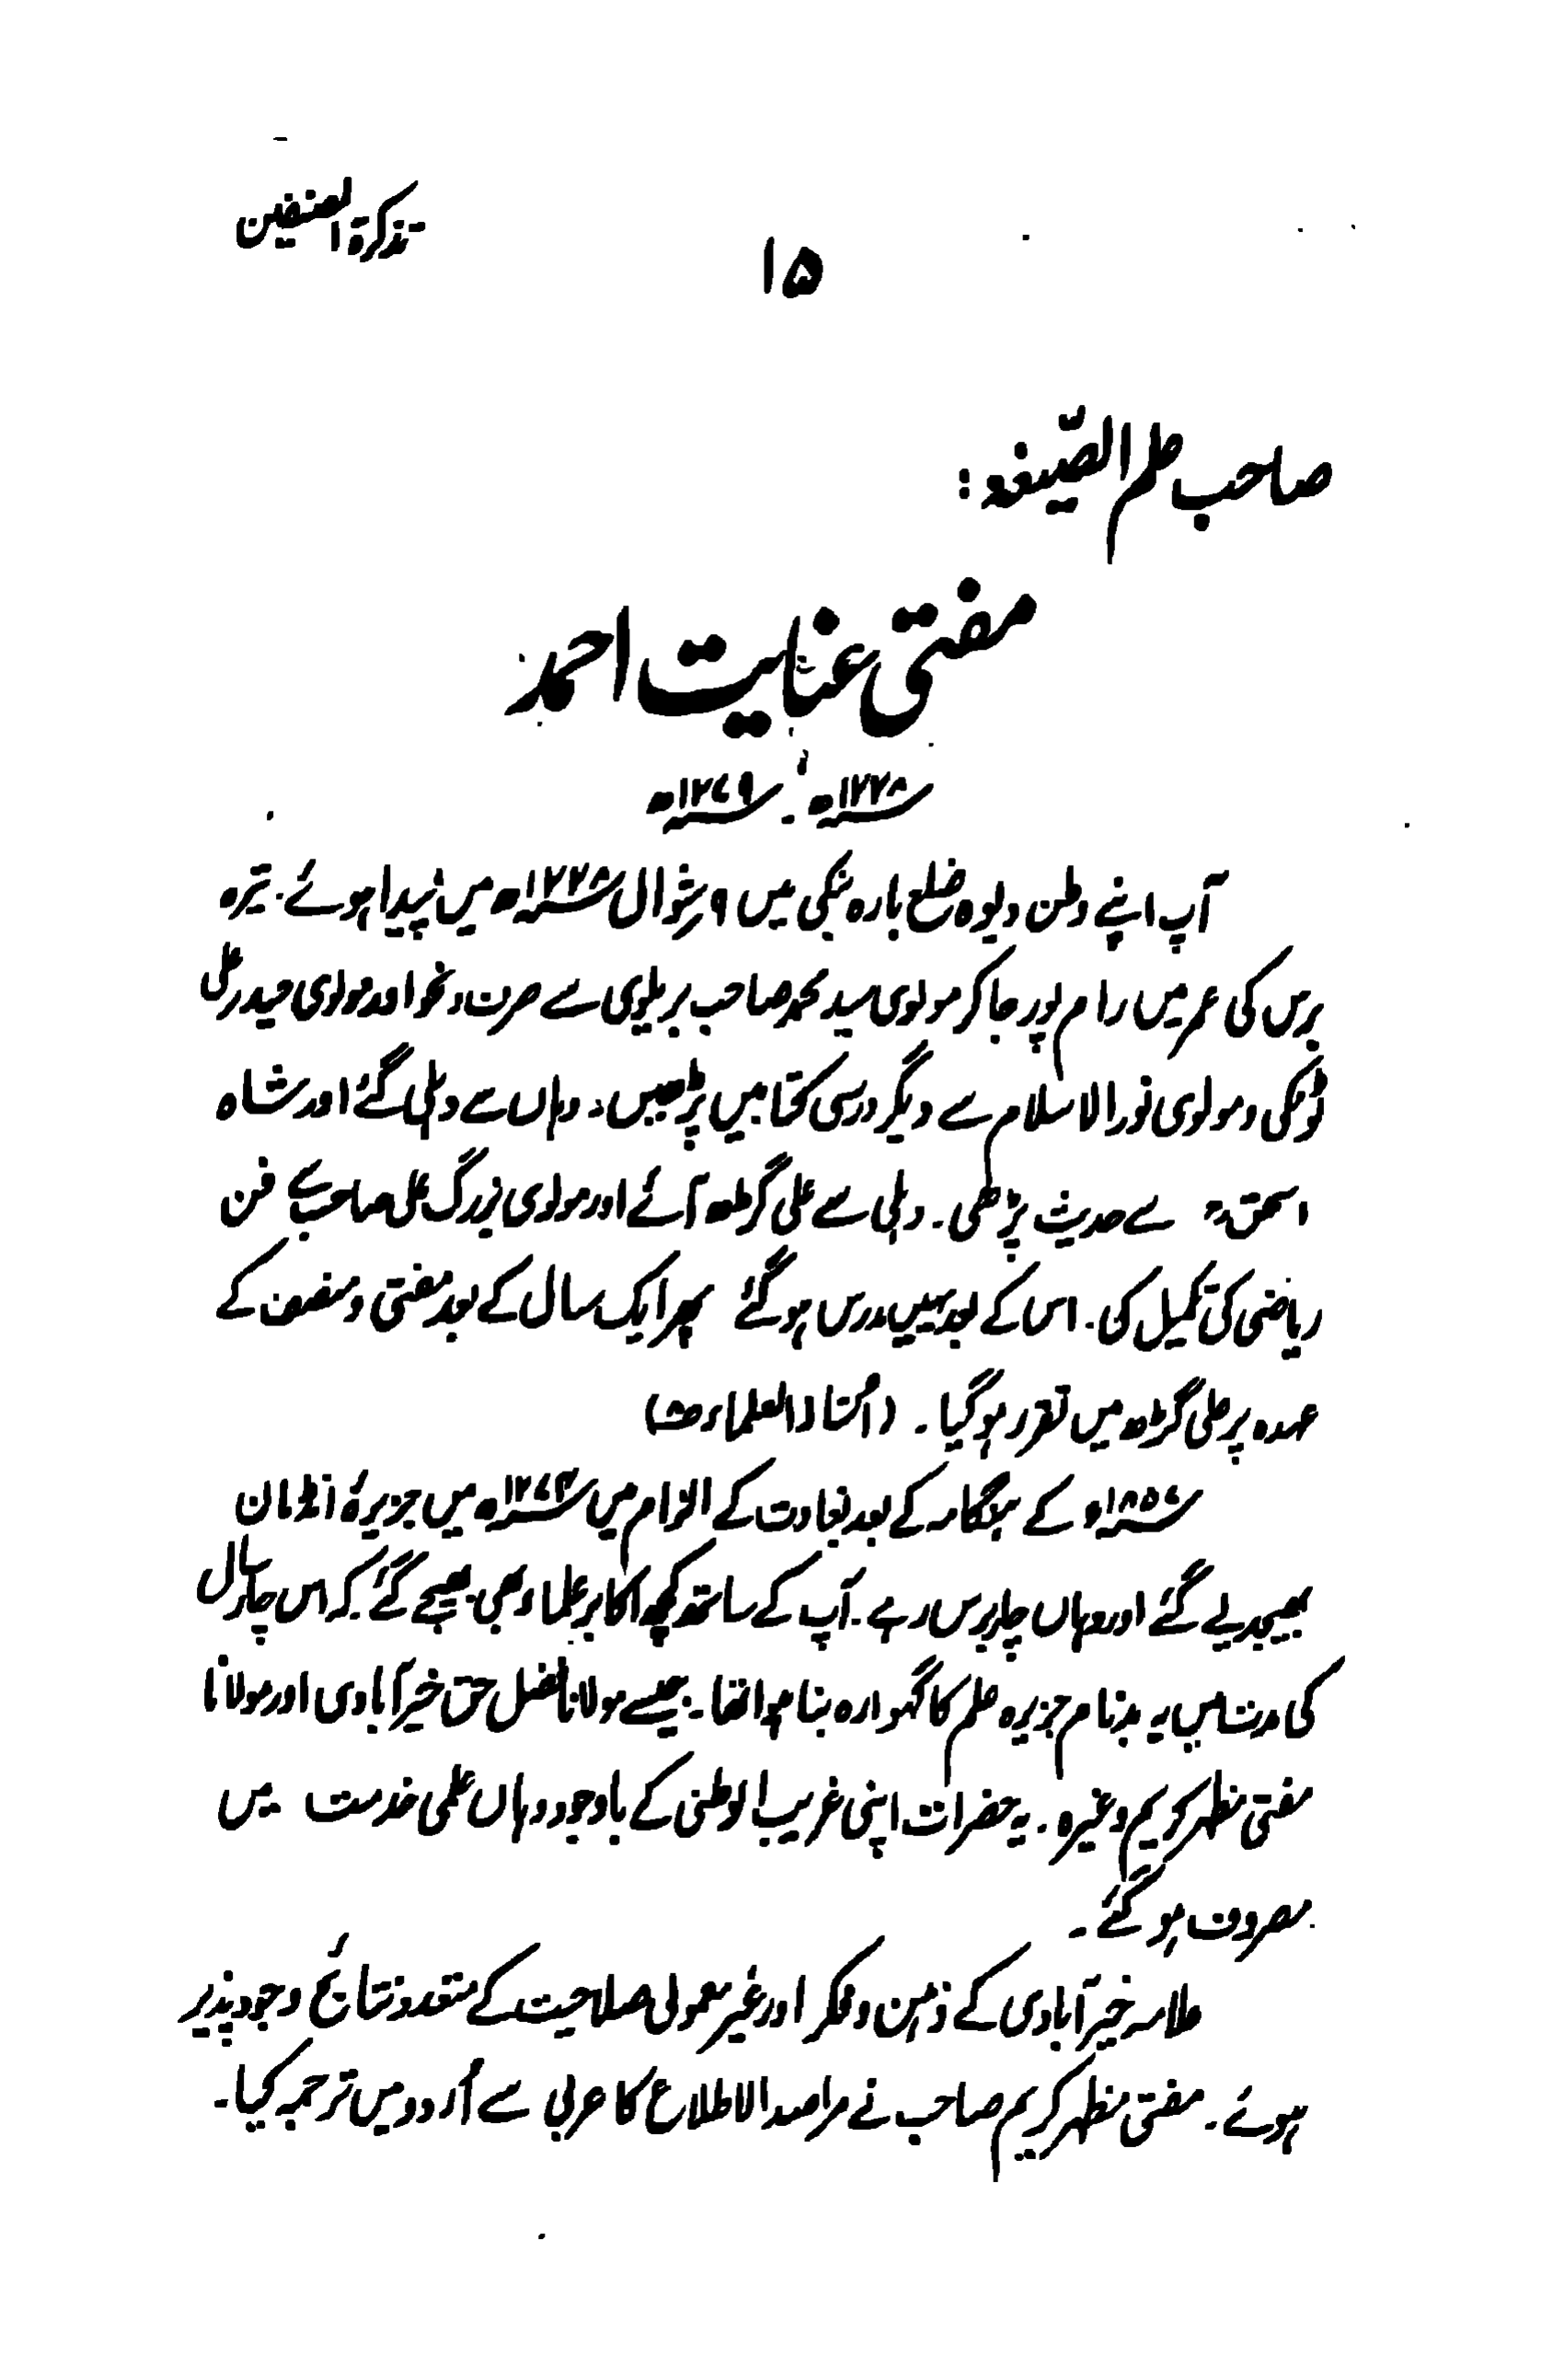 تذکرۃ المصنفین
۱۵
صاحب علم الصّیغہ :
مفتی عنایت احمد
۱۲۲۸ھ . ۱۲۷۹ھ
آپ اپنے وطن دیوہ ضلع بارہ بنکی میں ۹ شوال ۱۲۲۸ھ میں پیدا ہوئے. تیرہ
برس کی عمر میں رام پور جا کر مولوی سید محمد صاحب بریلوی سے صرف و نحو اور مولوی حیدر علی
ٹونکی و مولوی نور الاسلام سے دیگر درسی کتابیں پڑھیں. وہاں سے دہلی گئے اور شاہ
اسحٰق ؒ سے حدیث پڑھی۔ دہلی سے علی گڑھ آئے اور مولوی بزرگ علی صاحب سے فن
ریاضی کی تکمیل کی۔ اس کے بعد یہیں مدرس ہو گئے پھر ایک سال کے بعد مفتی و منصف کے
عہدہ پر علی گڑھ میں تقرر ہو گیا۔ (استاذ العلماء)
۱۸۵۷ء کے ہنگامہ کے بعد بغاوت کے الزام میں ۱۲۷۴ھ میں جزیرۂ انڈمان
بھیجدیے گئے اور وہاں چار برس رہے۔ آپ کے ساتھ کچھ اکابر علماء بھی بھیجے گئے کہ اس چار سال
کی مدت میں یہ بدنام جزیرہ علم کا گہوارہ بنا ہوا تھا۔ جیسے مولانا فضل حق خیر آبادی اور مولانا
مفتی مظہر کریم وغیرہ۔ یہ حضرات اپنی غریب الوطنی کے باوجود وہاں علمی خدمت میں
مصروف ہو گئے۔
علامہ خیر آبادی کے ذہن و فکر اور غیر معمولی صلاحیت کے متعدد نتائج وجود پذیر
ہوئے۔ مفتی مظہر کریم صاحب نے مراصد الاطلاع کا عربی سے اُردو میں ترجمہ کیا۔